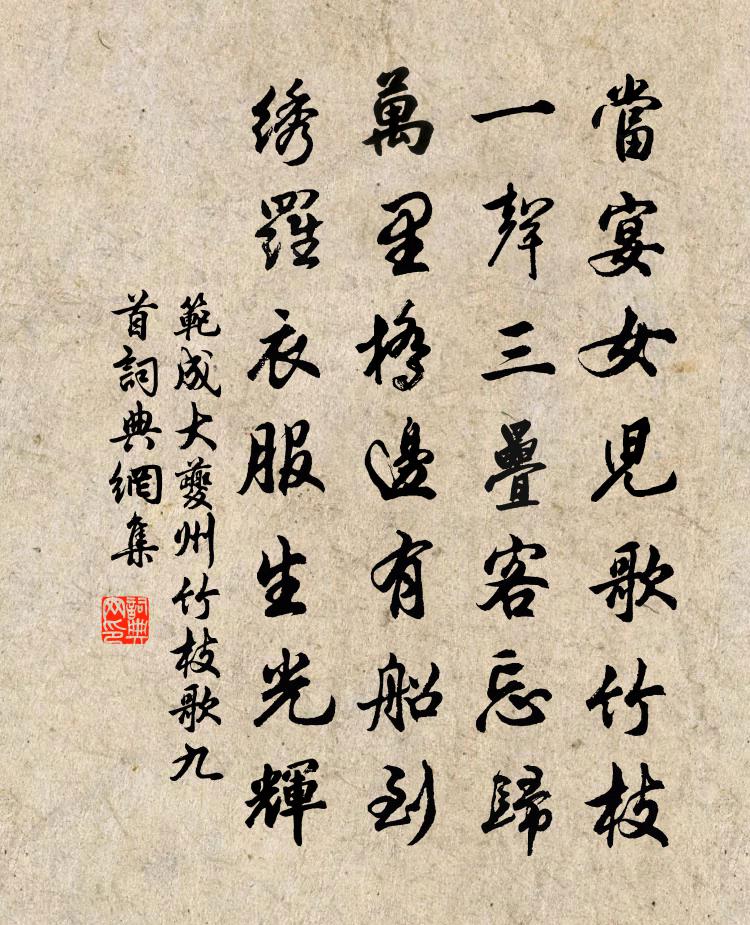 當宴女児歌竹枝
一聲三疊客忘歸
萬里橋邊有船到
绣羅衣服生光輝
範成大夔州竹枝歌九
首詞典網集
詞典
网印